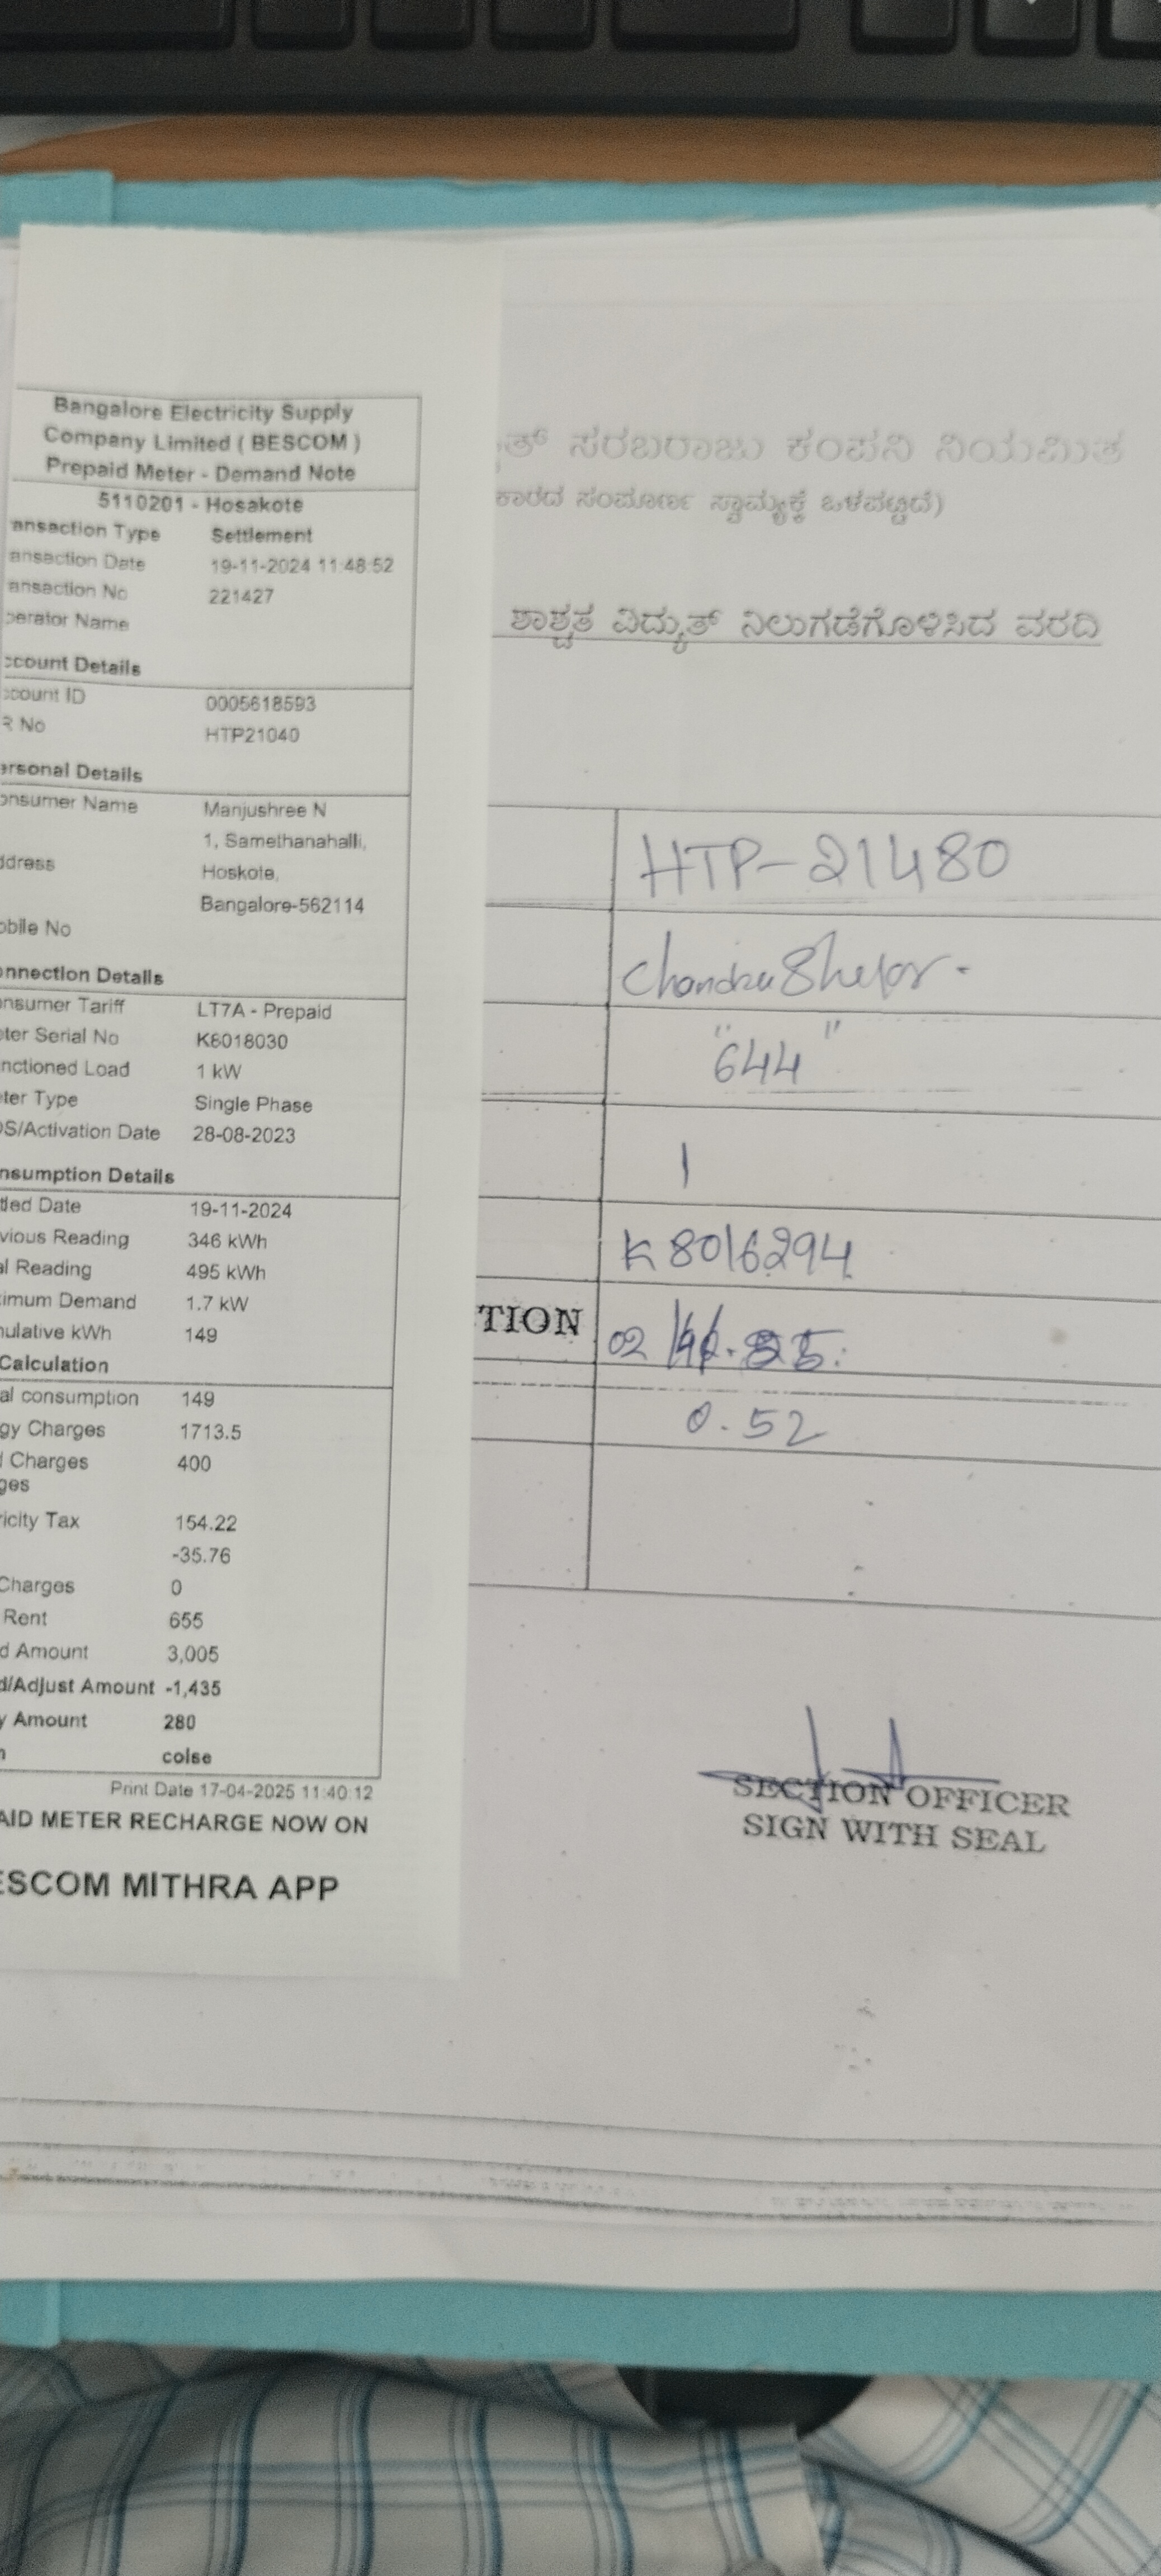 Bangalore Electricity Supply
Company Limited ( BESCOM )
Prepaid Meter - Demand Note
5110201 - Hosakote
ansaction Type Settlement
ansaction Date 19-11-2024 11:48:52
ansaction No 221427
perator Name
ccount Details
ccount ID 0005618593
R No HTP21040
ersonal Details
onsumer Name Manjushree N
1, Samethanahalli,
ddress Hoskote,
Bangalore-562114
obile No
onnection Details
onsumer Tariff LT7A - Prepaid
eter Serial No K6018030
nctioned Load 1 kW
ter Type Single Phase
OS/Activation Date 28-08-2023
nsumption Details
tled Date 19-11-2024
vious Reading 346 kWh
al Reading 495 kWh
imum Demand 1.7 kW
mulative kWh 149
Calculation
al consumption 149
gy Charges 1713.5
d Charges 400
ges
ricity Tax 154.22
-35.76
Charges 0
Rent 655
d Amount 3,005
d/Adjust Amount -1,435
y Amount 280
n colse
Print Date 17-04-2025 11:40:12
AID METER RECHARGE NOW ON
ESCOM MITHRA APP
ತ್ ಸರಬರಾಜು ಕಂಪನಿ ನಿಯಮಿತ
ಕಾರದ ಸಂಪೂರ್ಣ ಸ್ವಾಮ್ಯಕ್ಕೆ ಒಳಪಟ್ಟಿದೆ)
ಶಾಶ್ವತ ವಿದ್ಯುತ್ ನಿಲುಗಡೆಗೊಳಿಸಿದ ವರದಿ
HTP-21480
"644"
1
K8016294
TION 02
0.52
SECTION OFFICER
SIGN WITH SEAL